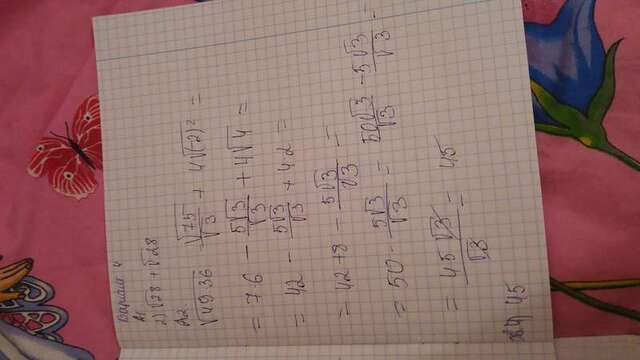 Вариант 4
A1
2) √28 + √28
A2
√49·36 √75/√3 + 4√(-2)² =
= 7·6 - 5√3/√3 + 4√4 =
= 42 - 5√3/√3 + 4·2 =
= 42 + 8 - 5√3/√3 =
= 50 - 5√3/√3 = 50√3/√3 - 5√3/√3 =
= 45√3/√3 = 45
4) 45